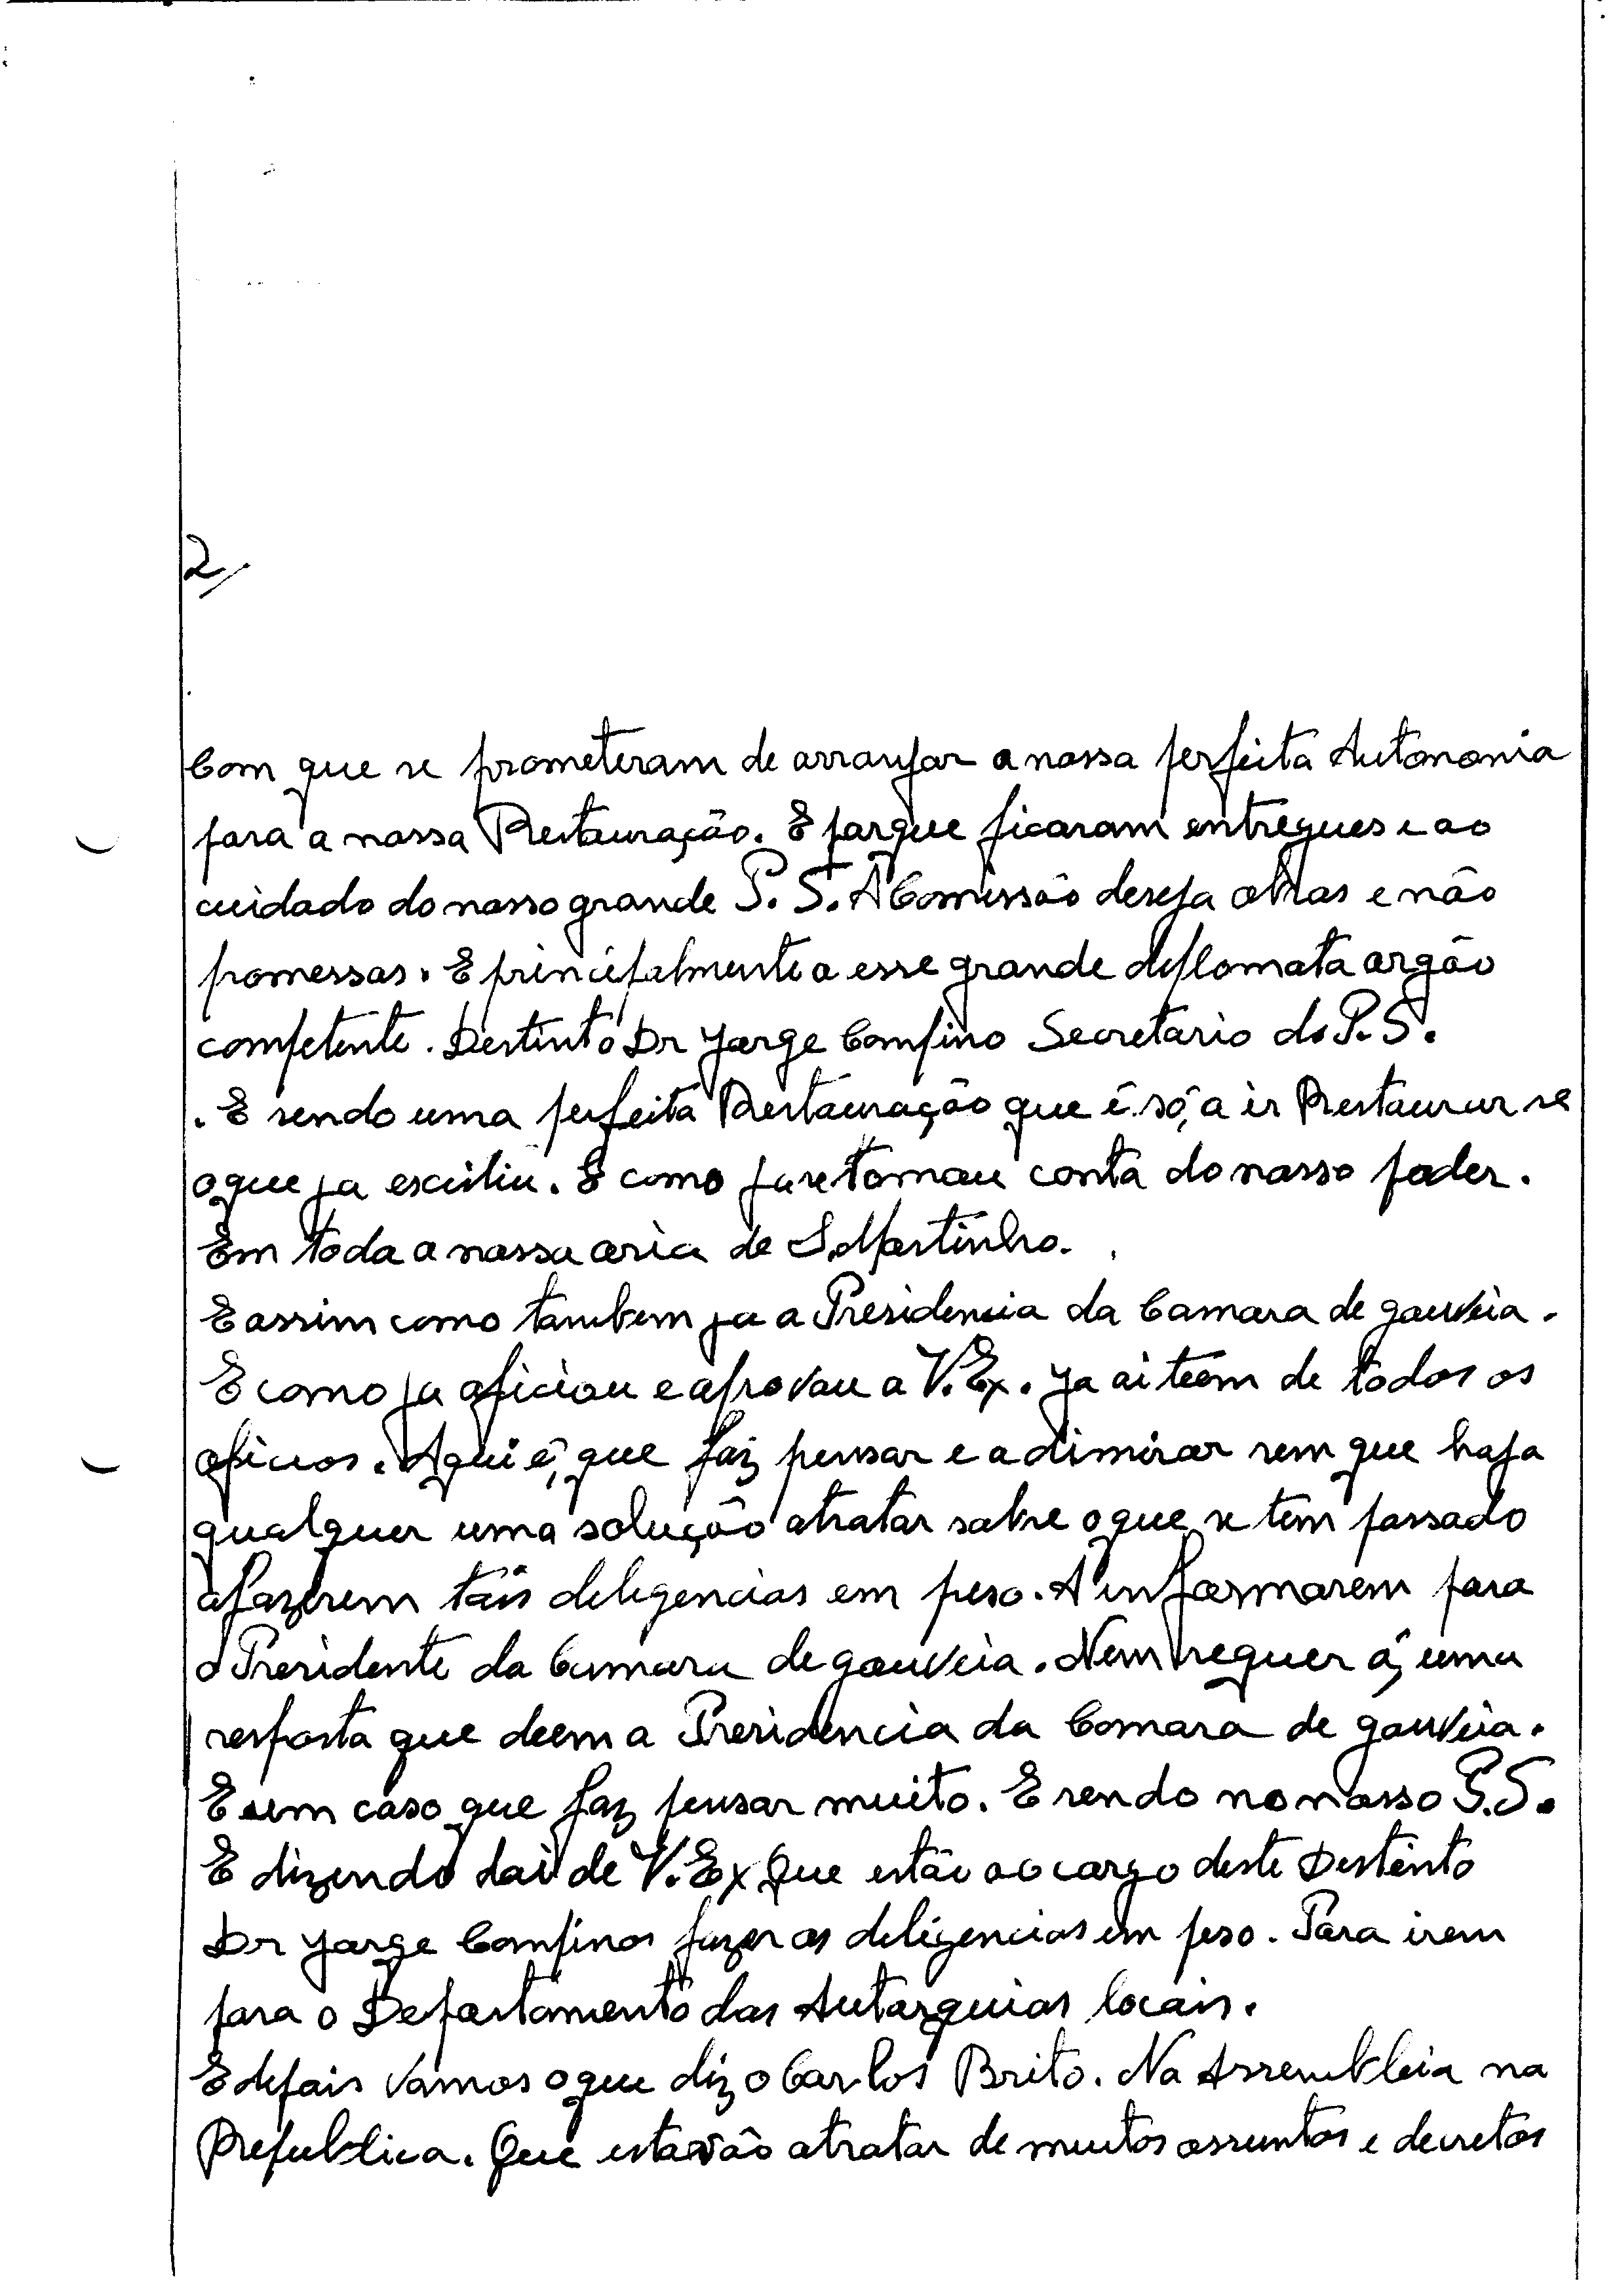 2/
Com que se prometeram de arranjar a nossa perfeita Autonomia
para a nossa Restauração. E porque ficaram entregues e ao
cuidado do nosso grande P. S. A Comissão deseja obras e não
promessas. E principalmente a esse grande deplomata orgão
competente. Destinto Dr Jorge Campino Secretario do P.S.
. E sendo uma perfeita Restauração que é só, a ir Restaurar se
o que ja escistiu. E como ja se tomou conta do nosso poder.
Em toda a nossa aria de S. Martinho.
E assim como tambem ja a Presidencia da Camara de gouveia.
E como ja oficiou e aprovou a V. Ex. Ja ai teem de todos os
oficios. Aqui é, que faz pensar e a dimirar sem que haja
qualquer uma solução atratar sobre o que se tem passado
afazerem tais deligencias em peso. A informarem para
o Presidente da Camara de gouveia. Nem sequer á, uma
resposta que deem a Presidencia da Comara de gouveia.
E um caso que faz pensar muito. E sendo no nosso P.S.
E dizendo dai de V. Ex Que estão ao cargo deste Destinto
Dr Jorge Campinos fazer as deligencias em peso. Para irem
para o Departamento das Autarquias locais.
E depois vamos o que diz o Carlos Brito. Na Assembleia na
Republica. Que estavão atratar de muitos assuntos e decretos